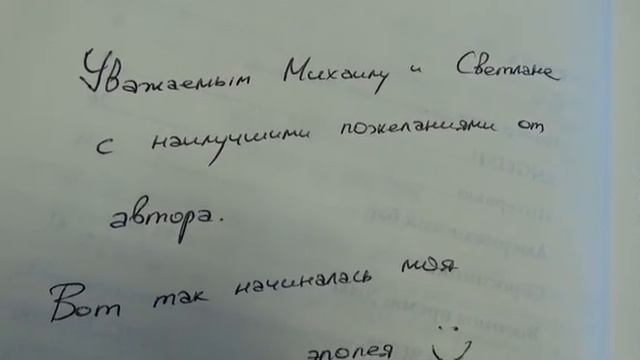 Уважаемым Михаилу и Светлане
с наилучшими пожеланиями от
автора.
Вот так начиналась моя
эпопея